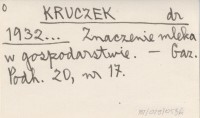 0
KRUCZEK dr
1932... Znaczenie mleka
w gospodarstwie. — Gaz.
Podh. 20, nr 17.